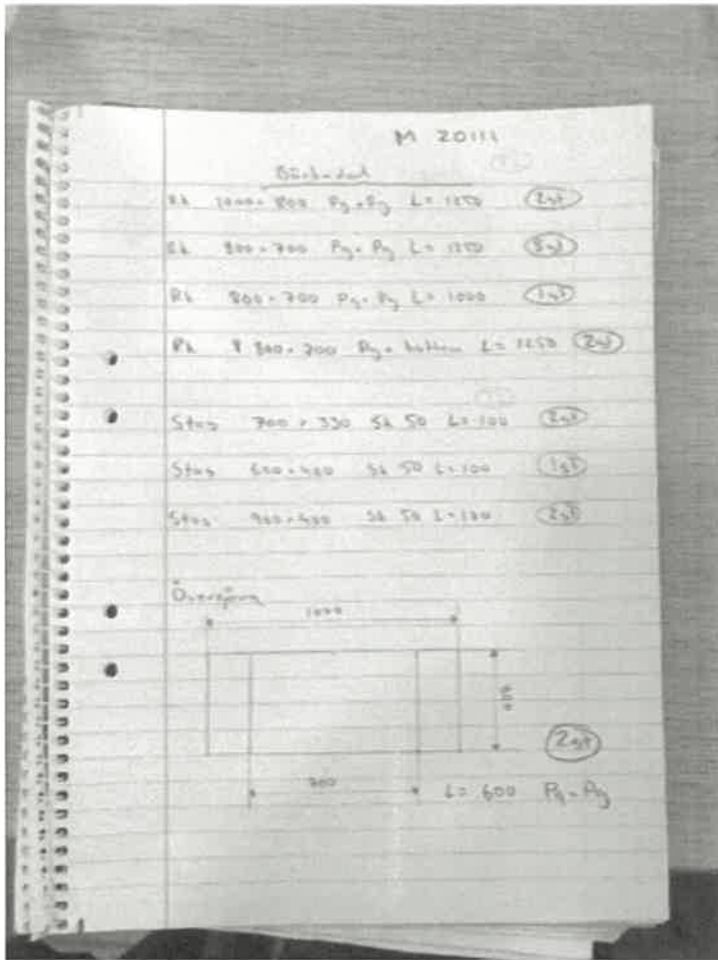 M 20111
Rk 1000 × 800 Pg - Pg L = 1250 2st
Rk 800 - 700 Pg - Pg L = 1250
Rk 800 - 700 Pg - Pg L = 1000 1st
Rk 800 - 700 Pg - botten L = 1250 2st
Stos 700 × 330 Sk 50 L = 100 2st
Stos 600 × 400 Sk 50 L = 100 1st
Stos 900 × 400 Sk 50 L = 100 2st
Övergång
1000
700
2st
L = 600 Pg - Pg